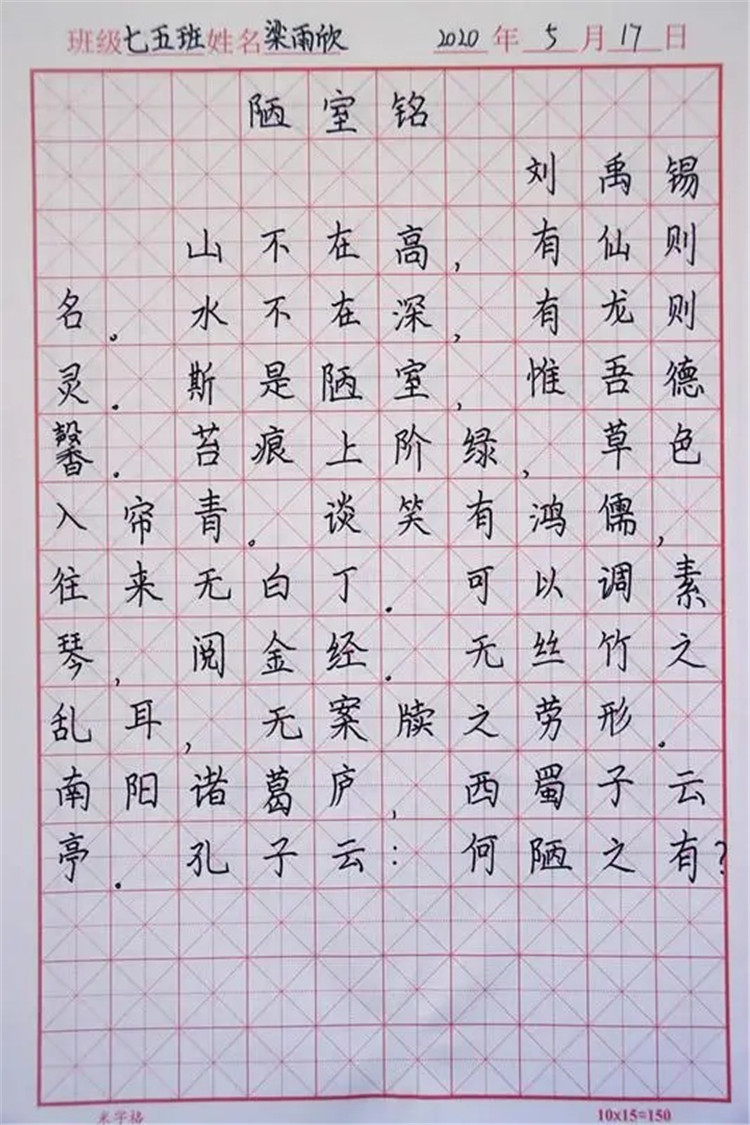 班级七五班姓名梁雨欣 2020年5月17日
陋室铭
刘禹锡
山不在高,有仙则
名。水不在深,有龙则
灵。斯是陋室,惟吾德
馨。苔痕上阶绿,草色
入帘青。谈笑有鸿儒,
往来无白丁。可以调素
琴,阅金经。无丝竹之
乱耳,无案牍之劳形。
南阳诸葛庐,西蜀子云
亭。孔子云:何陋之有?
米字格 10x15=150